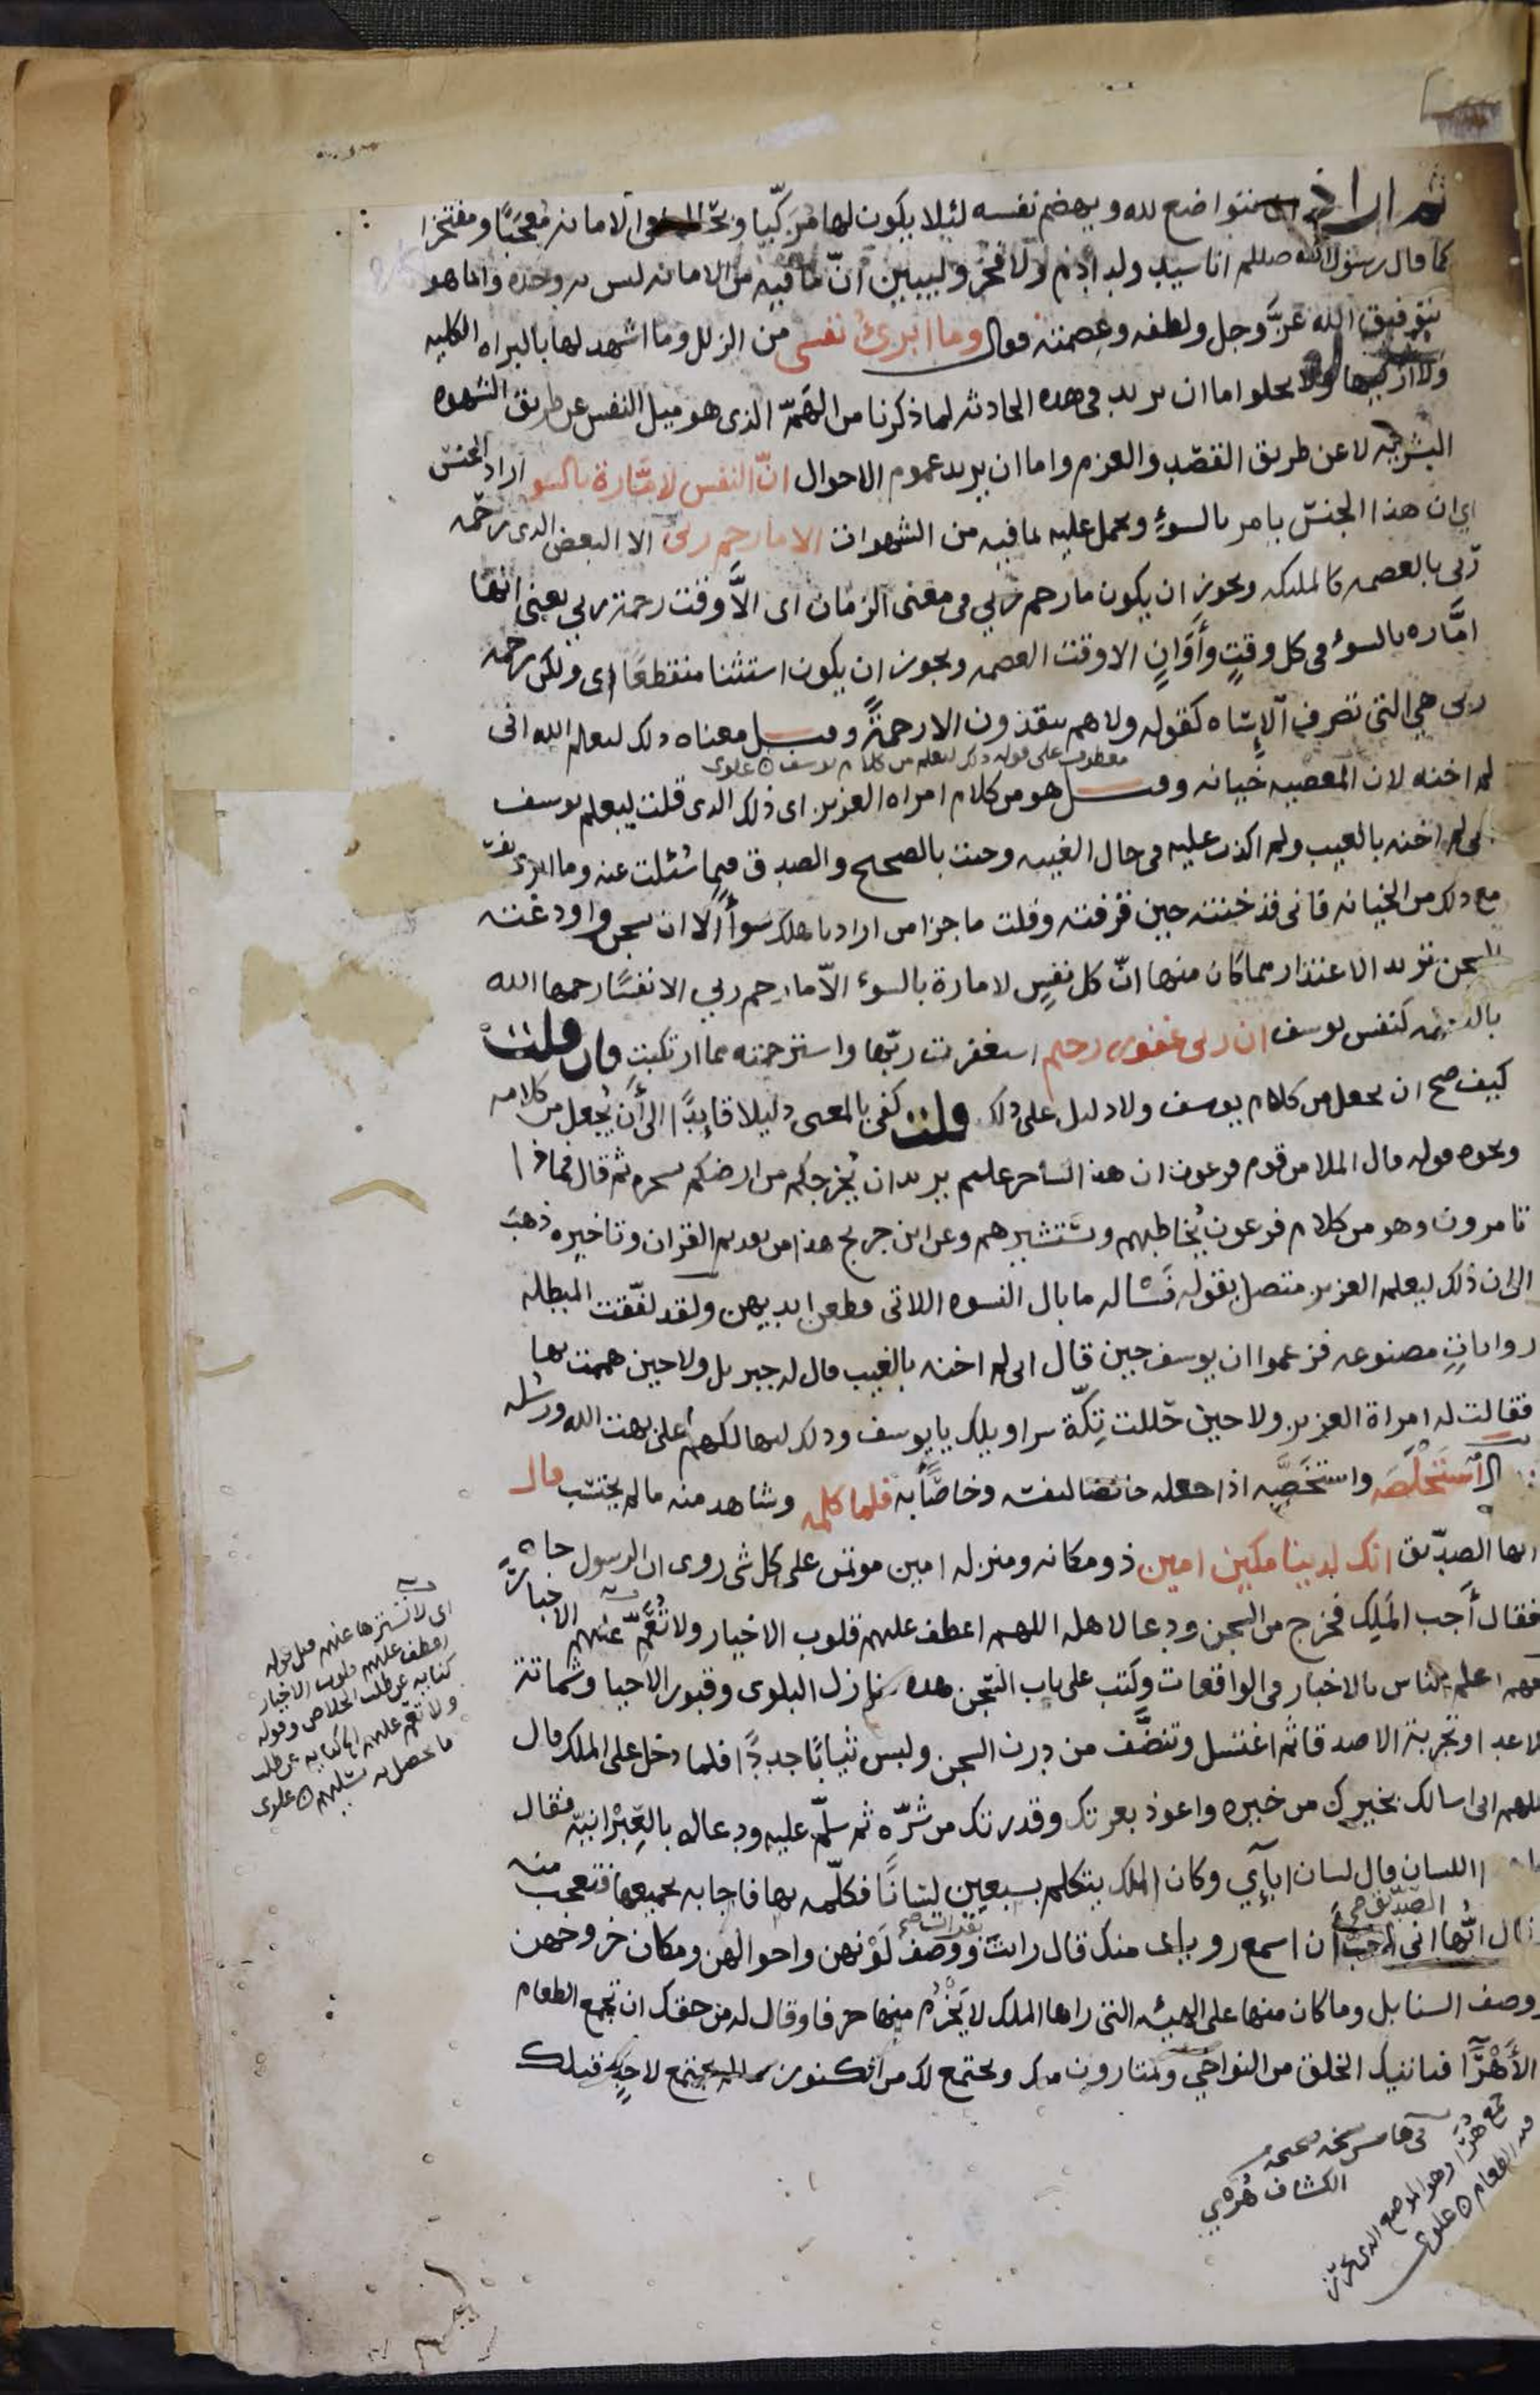 ثم اراد ان يتواضع لله ويهضم نفسه لئلا يكون لها مزكّيا وبحالها فى الامانه مُعجَبًا ومفتخرا
كما قال رسول الله صللم انا سيد ولد ادم ولا فخر وليبين انّ ما فيه من الامانه ليس به وحده وانما هو
بتوفيق الله عزّ وجل ولطفه وعصمته فقال وما ابرئ نفسى من الزلل وما اشهد لها بالبراه الكليه
ولا ازكيها ولا يخلو اما ان يريد فى هذه الحادثه لما ذكرنا من الهمّ الذى هو ميل النفس عن طريق الشهوه
البشريه لا عن طريق القصد والعزم واما ان يريد عموم الاحوال انّ النفس لامّارة بالسو اراد الجنس
اى ان هذا الجنس يامر بالسوء ويحمل عليه بما فيه من الشهوات الا ما رحم ربى الا البعض الذى رحمه
ربى بالعصمه كالملئكه ويجوز ان يكون ما رحم ربي فى معنى الزمان اى الّا وقت رحمة ربي يعنى انها
امّاره بالسوء فى كل وقتٍ وأَوَانٍ الا وقت العصمه ويجوز ان يكون استثنا منقطعًا اى ولكن رحمه
ربى هى التى تصرف الإساه كقوله ولا هم ينقذون الا رحمةً وقيل معناه ذلك ليعلم الله انى
معطوف على قوله ذلك ليعلم من كلام يوسف ٥ علوى
لم اخنه لان المعصيه خيانه وقيل هو من كلام امراه العزيز اى ذلك الذى قلت ليعلم يوسف
انى لم اخنه بالغيب ولم اكذب عليه فى حال الغيبه وجئت بالصحيح والصدق فيما سُئلت عنه وما ابرئ نفسى
مع ذلك من الخيانه فانى قد خنته حين قرفته وقلت ما جزا من اراد باهلك سوأً الا ان يسجن واودعته
السجن تريد الاعتذار مما كان منها انّ كل نفسٍ لامارة بالسوء الّا ما رحم ربي الا نفسًا رحمها الله
بالعصمه كنفس يوسف ان ربى غفور رحيم استغفرت ربّها واسترحمته مما ارتكبت فان قلت
كيف صح ان يجعل من كلام يوسف ولا دليل على ذلك قلت كفى بالمعنى دليلا قايدًا الى أَن يُجعل من كلامه
ونحوه قوله قال الملا من قوم فرعون ان هذا لساحر عليم يريد ان يُخرجكم من ارضكم بسحره ثم قال فماذا
تامرون وهو من كلام فرعون يُخاطبهم ويستشيرهم وعن ابن جريج هذا من تقديم القران وتاخيره ذهب
الى ان ذلك ليعلم العزيز متصل بقوله فَسْاله ما بال النسوه اللاتى قطعن ايديهن ولقد لفّقت المبطله
رواياتٍ مصنوعه فزعموا ان يوسف حين قال انى لم اخنه بالغيب قال له جبريل ولا حين هممت بها
فقالت له امراة العزيز ولا حين حللت تِكّة سراويلك يا يوسف وذلك لتهالكهم على بهت الله ورسُله
اسْتَخْلَصَه واستخصَّه اذا جعله خالصا لنفسه وخاصّاً به فلما كلمه وشاهد منه ما لم يحتسب قال
ايها الصدّيق انك لدينا مكين امين ذو مكانه ومنزله امين موتمن على كل شى روى ان الرسول جاه
فقال أَجب المَلِك فخرج من السجن ودعا لاهله اللهم اعطف عليهم قلوب الاخيار ولا تُعَمّ عنهم الاخبار
فهم اعلم الناس بالاخبار فى الواقعات وكَتب على باب السّجن هذه منازل البلوى وقبور الاحيا وشماتة
الاعدا وتجربة الاصدقا ثم اغتسل وتنضَّف من درن السجن ولبس ثيابًا جددًا فلما دخل على الملك قال
اللهم انى اسالك بخيرك من خيره واعوذ بعزتك وقدرتك من شرّه ثم سلّم عليه ودعا له بالعِبْرانيّه فقال
ما هذا اللسان قال لسان ابآيي وكان الملك يتكلم بسبعين لسانًا فكلّمه بها فاجابه بجميعها فتعجب منه
وقال ايّها الصدّيق انى احبّ أن اسمع روياى منك قال رايت بقرات ووصف لَوْنهن واحوالهن ومكان خروجهن
ووصف السنابل وما كان منها على الهيئه التى راها الملك لا يَخْرُم منها حرفا وقال له من حقك ان تجمع الطعام
الأَهْرَّا فياتيك الخلق من النواحى ويمتارون منك ويجتمع لك من الكنوز ما لم يجتمع لاحدٍ قبلك
اى لا تسترها عنهم قيل قوله
اعطف عليهم قلوب الاخيار
كنايه عن طلب الخلاص وقوله
ولا تعم عليهم الخ كنايه عن طلب
ما يحصل به تسليهم ٥ علوى
فى هامش نسخه صحيحه
الكشاف هُرْي
جمع هُرْا وهو الموضع الذى يخزن
فيه الطعام ٥ علوى